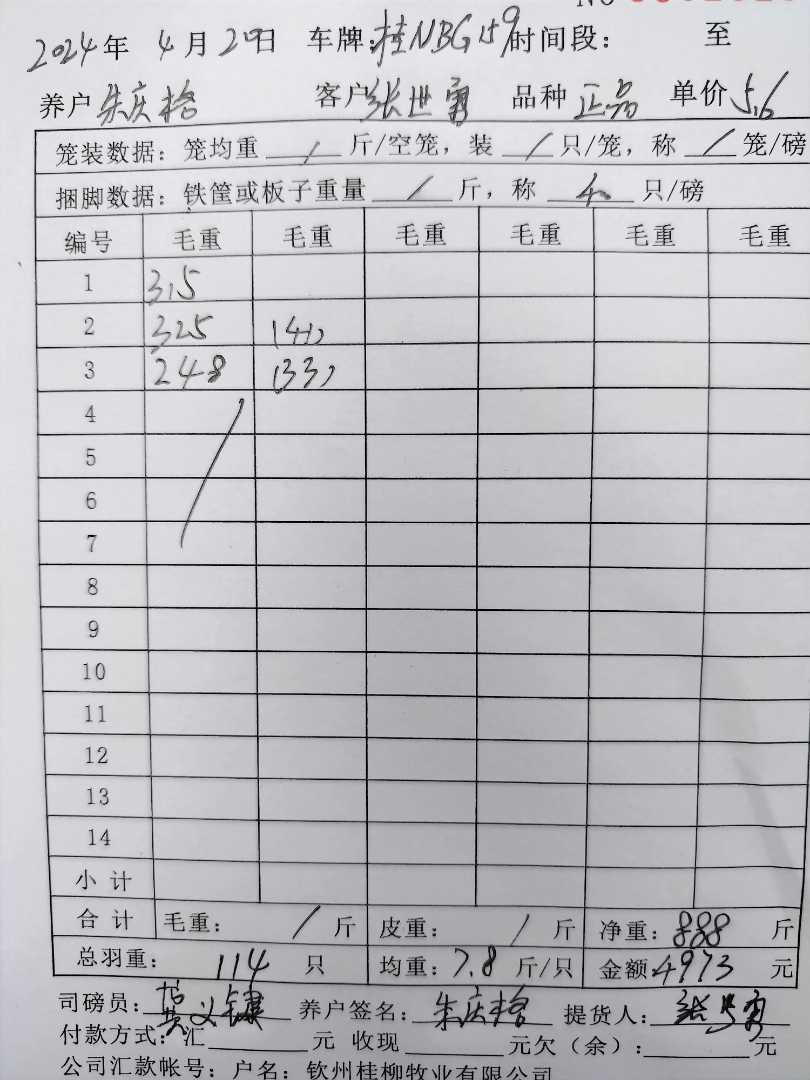 NO
2024年 4月20日 车牌:桂NBG159 时间段: 至
养户 朱庆格 客户 张世勇 品种 正品 单价 5.6
笼装数据: 笼均重 / 斤/空笼, 装 / 只/笼, 称 / 笼/磅
捆脚数据: 铁筐或板子重量 / 斤, 称 只/磅
编号 毛重 毛重 毛重 毛重 毛重 毛重
1 315
2 325 (41)
3 248 (33)
4
5
6
7
8
9
10
11
12
13
14
小计
合计 毛重: / 斤 皮重: / 斤 净重: 888 斤
总羽重: 114 只 均重: 7.8 斤/只 金额: 4973 元
司磅员: 养户签名: 朱庆格 提货人: 张世勇
付款方式: 汇 元 收现 元欠(余): 元
公司汇款帐号: 户名: 钦州桂柳牧业有限公司